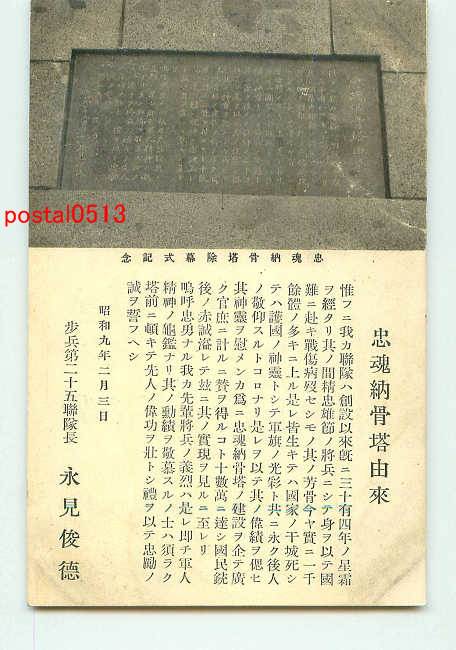 postal0513
忠魂納骨塔除幕式記念
忠魂納骨塔由來
惟フニ我カ聯隊ハ創設以來既ニ三十有四年ノ星霜
ヲ經タリ其ノ間精忠雄節ノ將兵ニシテ身ヲ以テ國
難ニ赴キ戰傷病歿セシモノ其ノ芳骨今ヤ實ニ一千
餘體ノ多キニ上ル是レ皆生キテハ國家ノ干城死シ
テハ護國ノ神靈トシテ軍旗ノ光彩ト共ニ永ク後人
ノ敬仰スルトコロナリ是レヲ以テ其ノ偉績ヲ偲セ
其神靈ヲ慰メンカ爲ニ忠魂納骨塔ノ建設ヲ企テ廣
ク官庶ニ計ルニ贊ヲ得ルコト十數萬ニ達シ國民銃
後ノ赤誠溢レテ玆ニ其ノ實現ヲ見ルニ至レリ
嗚呼忠勇ナル我カ先輩將兵ノ義烈ハ是レ即チ軍人
精神ノ龜鑑ナリ其ノ勳績ヲ敬慕スルノ士ハ須ラク
塔前ニ頓キテ先人ノ偉功ヲ壯トシ禮ヲ以テ忠勵ノ
誠ヲ誓フヘシ
昭和九年二月三日
步兵第二十五聯隊長 永見俊德